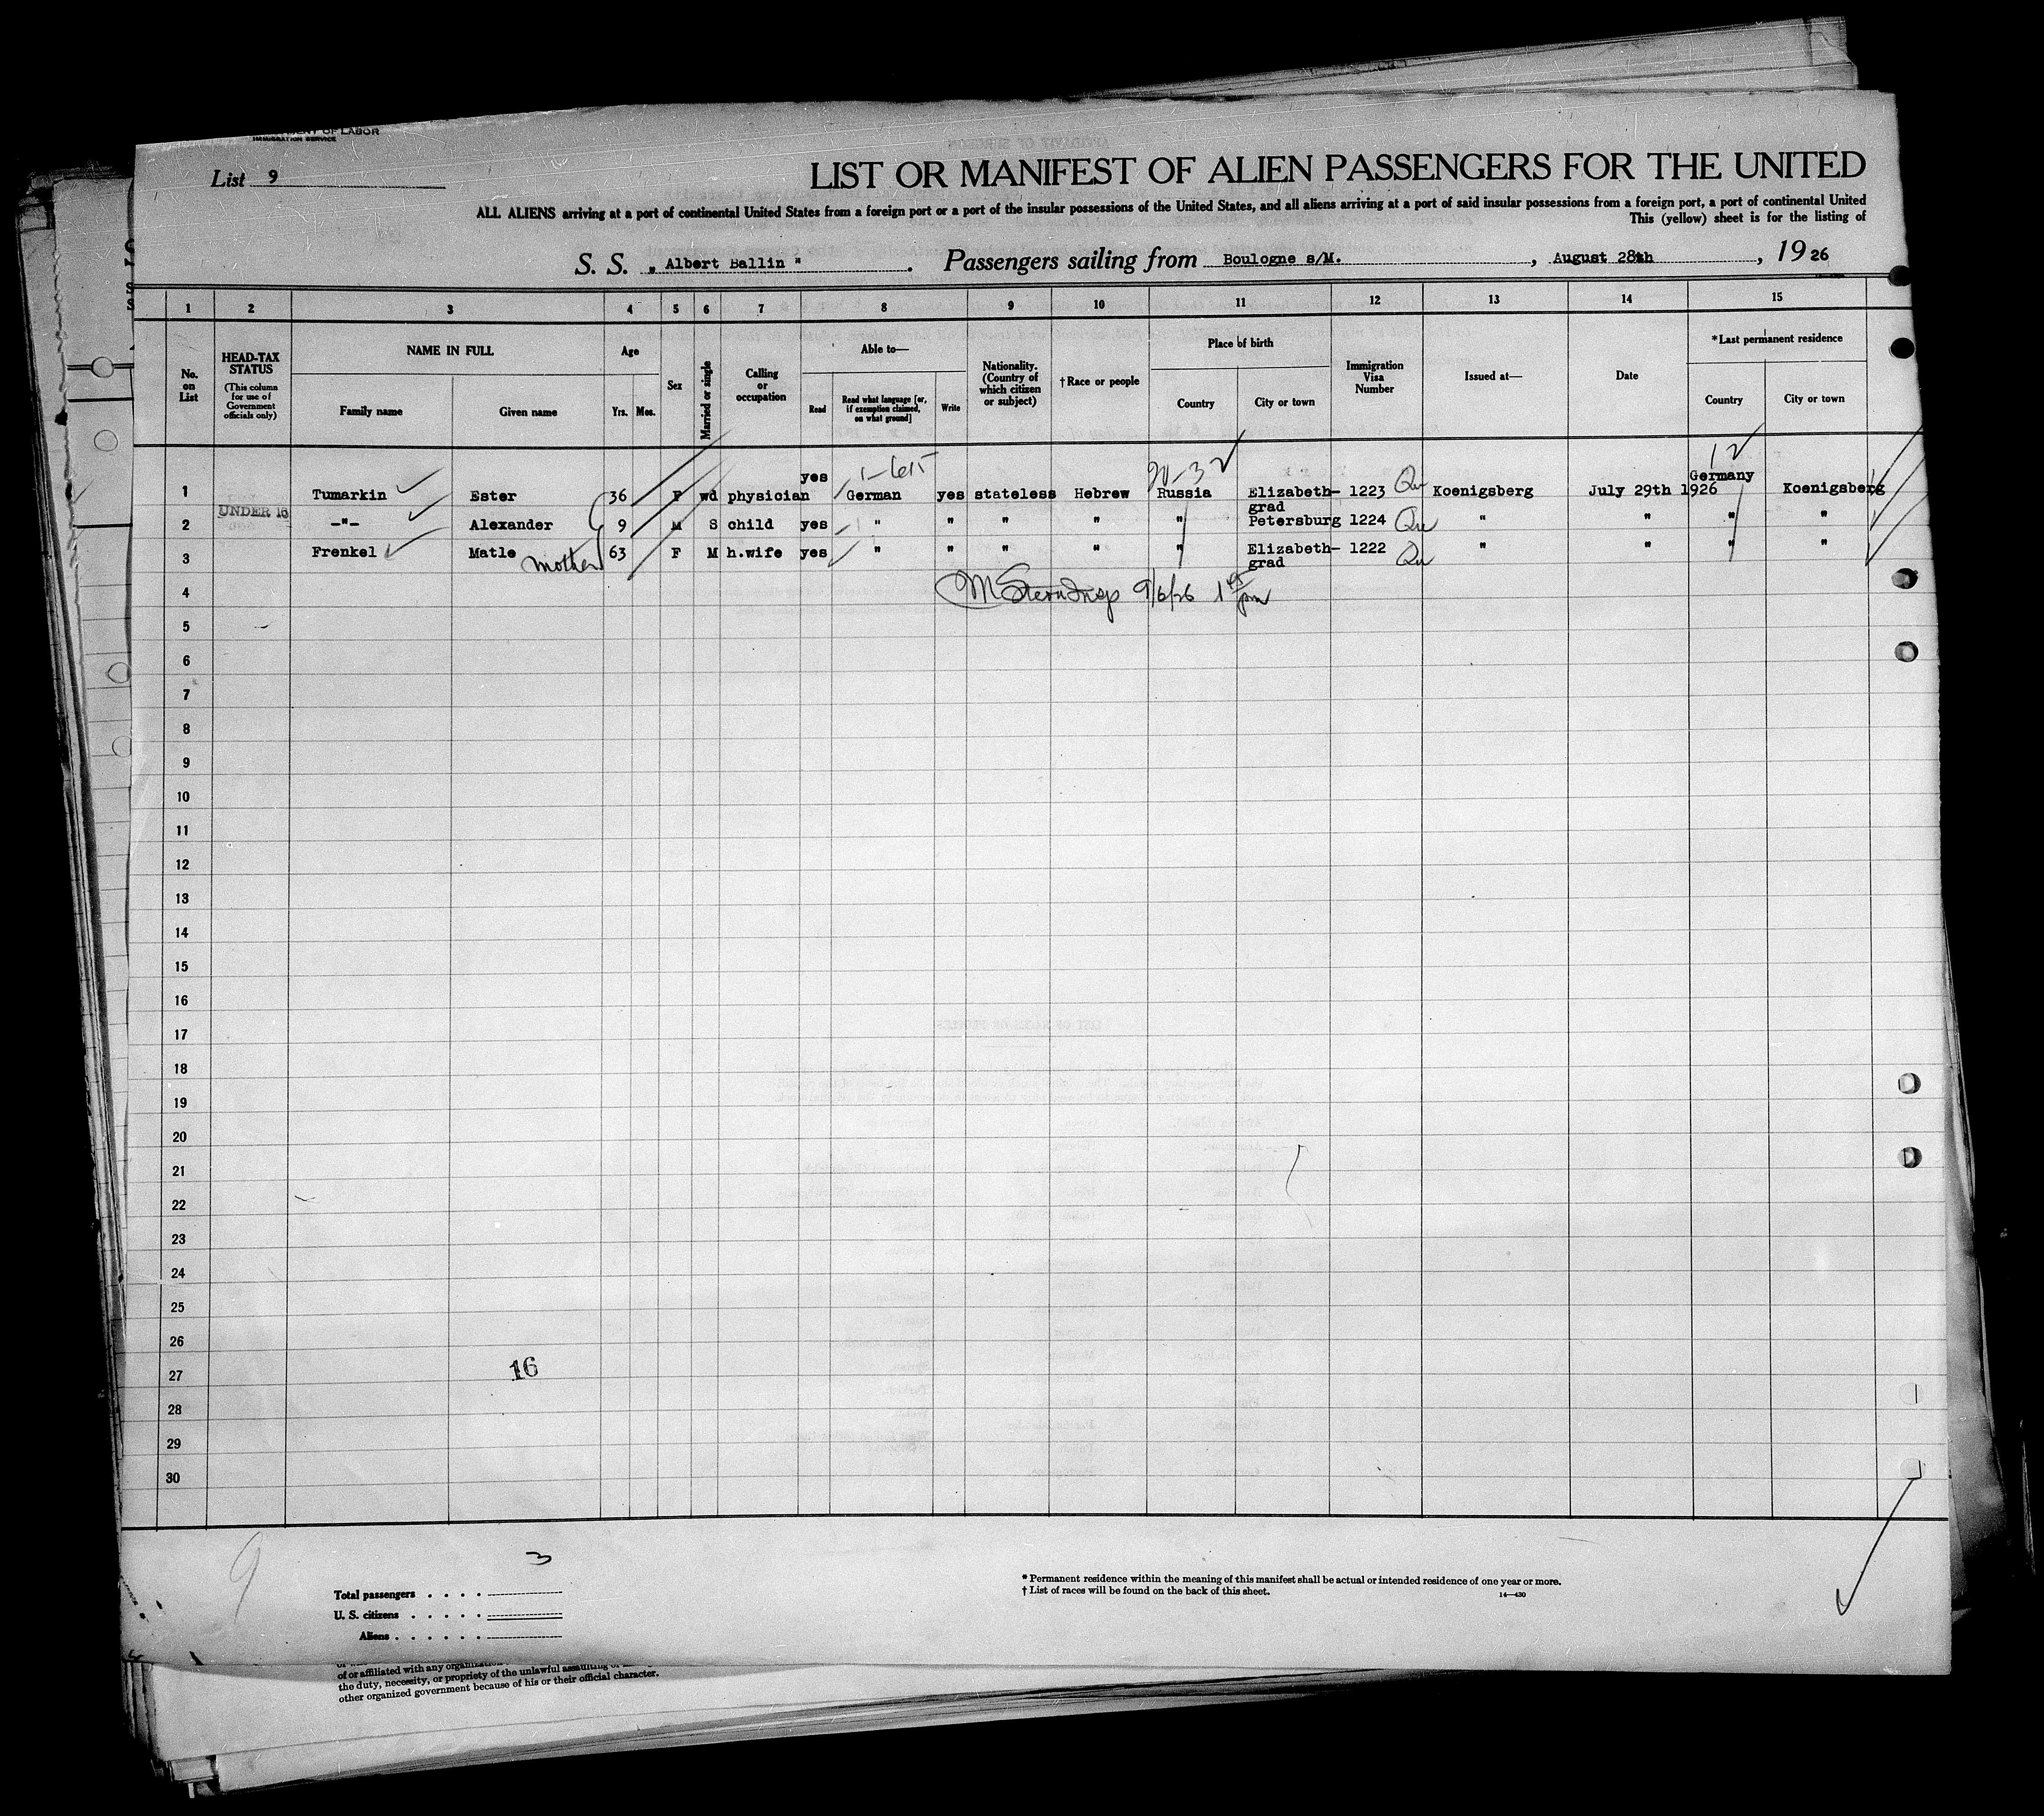 OF LABOR
IMMIGRATION SERVICE
List 9
LIST OR MANIFEST OF ALIEN PASSENGERS FOR THE UNITED
ALL ALIENS arriving at a port of continental United States from a foreign port or a port of the insular possessions of the United States, and all aliens arriving at a port of said insular possessions from a foreign port, a port of continental United
This (yellow) sheet is for the listing of
S. S. „ Albert Ballin " . Passengers sailing from Boulogne s/M. , August 28th , 19 26
1 2 3 4 5 6 7 8 9 10 11 12 13 14 15
No. on List
HEAD-TAX STATUS
(This column for use of Government officials only)
NAME IN FULL
Family name Given name
Age
Yrs. Mos.
Sex
Married or single
Calling or occupation
Able to—
Read Read what language [or, if exemption claimed, on what ground] Write
Nationality. (Country of which citizen or subject)
† Race or people
Place of birth
Country City or town
Immigration Visa Number
Issued at—
Date
* Last permanent residence
Country City or town
1 Tumarkin Ester 36 F wd physician yes German yes stateless Hebrew Russia Elizabeth-grad 1223 Qu Koenigsberg July 29th 1926 Germany Koenigsberg
UNDER 16
2 -"- Alexander 9 M S child yes " " " " " Petersburg 1224 Qu " " " "
3 Frenkel Matle mother 63 F M h.wife yes " " " " " Elizabeth-grad 1222 Qu " " " "
4 M Stern Insp 9/6/26 1 45 pm
5
6
7
8
9
10
11
12
13
14
15
16
17
18
19
20
21
22
23
24
25
26
27 16
28
29
30
9
3
Total passengers . . . .
U. S. citizens . . . . .
Aliens . . . . . .
* Permanent residence within the meaning of this manifest shall be actual or intended residence of one year or more.
† List of races will be found on the back of this sheet.
14—430
of or affiliated with any organization
the duty, necessity, or propriety of the unlawful assaulting
other organized government because of his or their official character.